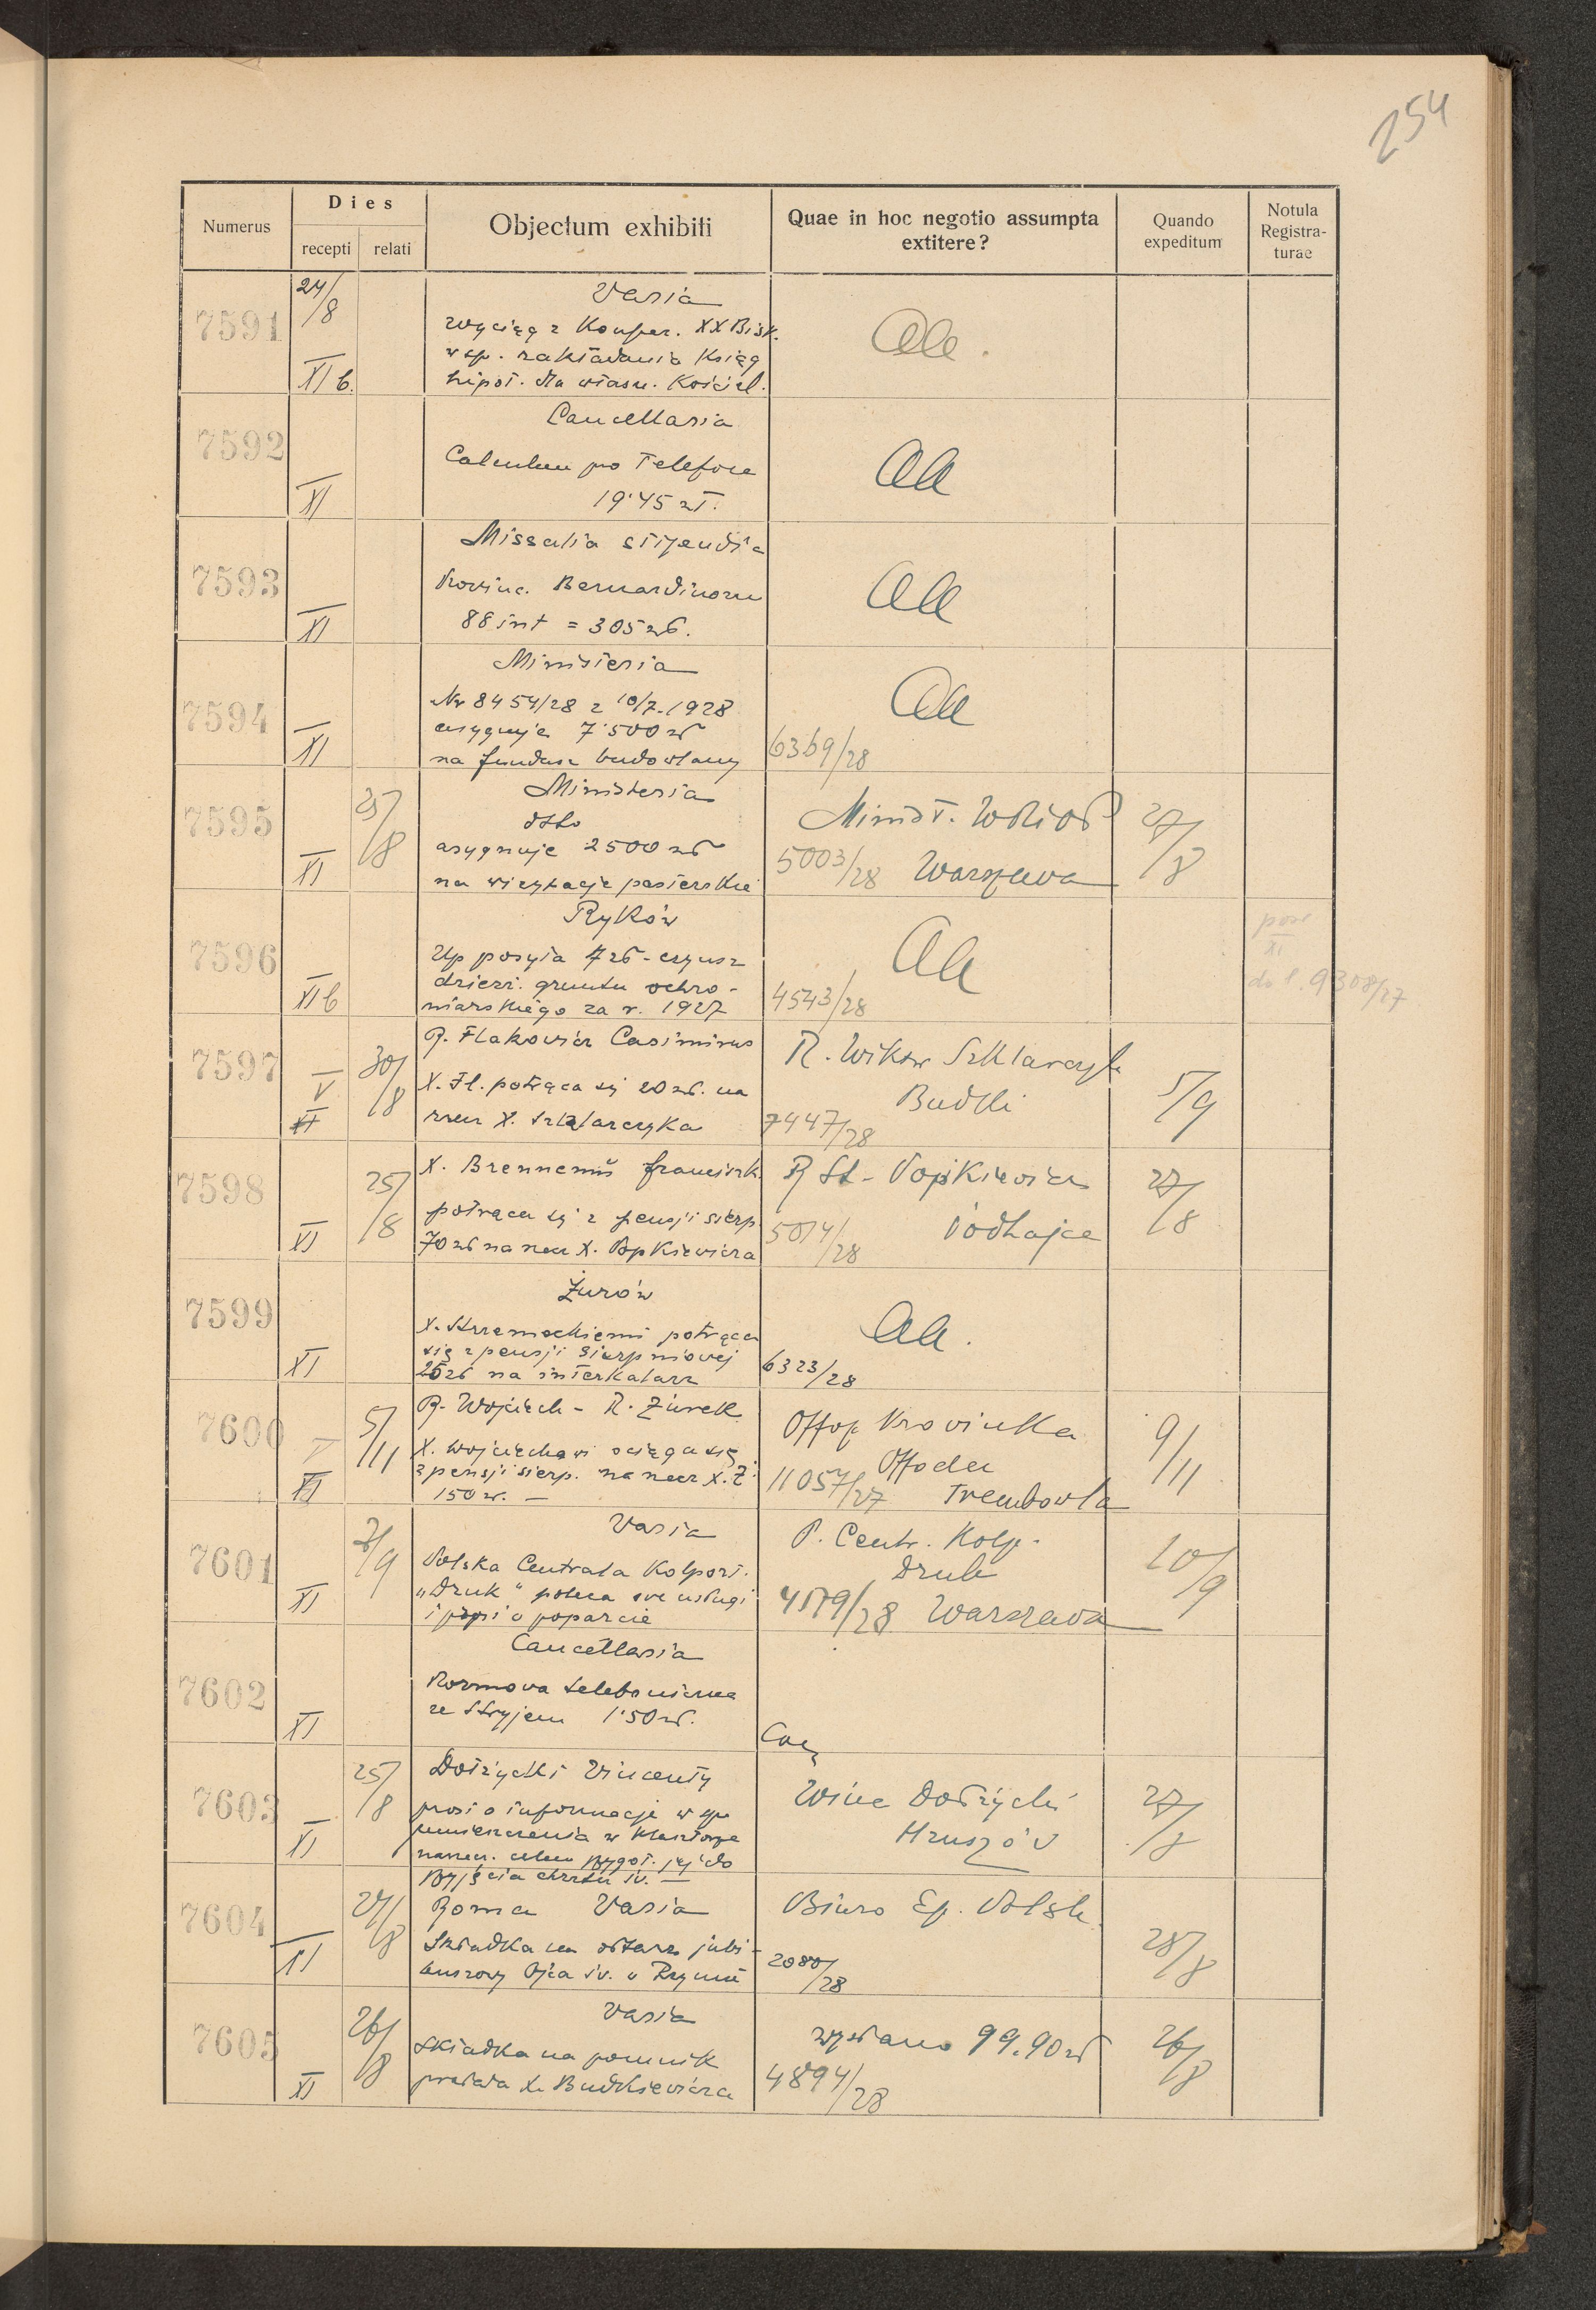 254
Numerus
Dies
recepti relati
Objectum exhibiti
Quae in hoc negotio assumpta extitere?
Quando expeditum
Notula Registra-turae
7591
24/8
XI b.
Varia
wyciąg z Konfer. XX Bisk.
w sp. zakładania Ksiąg
hipot. dla własn. Kościel.
Aa.
7592
XI
Cancellaria
Calculum pro Telefone
19'45 zł.
Aa
7593
XI
Missalia stipendia
Provinc. Bernardinorum
88 int = 305 zł.
Aa
7594
XI
Ministeria
Nr 8454/28 z 10/7.1928
asygnuje 7'500 zł
na fundusz budowlany
Aa
6369/28
7595
25/8
XI
Ministeria
dtto
asygnuje 2500 zł
na wizytacje pasterskie
Minist. WRiOP
5003/28 Warszawa
27/8
7596
XI b
Ryków
Up posyła 7 zł - czynsz
dzierż. gruntu ochro-
niarskiego za r. 1927
Aa
4543/28
XI
do l. 9308/27
7597
V
XI
30/8
R. Flakowicz Casimirus
X. Fl. potrąca się 20 zł. na
rzecz X. Szklarczyka
R. Wiktor Szklarczyk
Budki
7447/28
5/9
7598
25/8
XI
X. Brennemü Franciszk.
potrąca się z pensji sierp
70 zł na rzecz X. Popkiewicza
R St. Popkiewicz
5014/28 Podhajce
27/8
7599
XI
Żurów
potrąca
się z pensji sierpniowej
25 zł na interkalarz
Aa.
6323/28
7600
V
XI
5/11
R. Wojciech - R. Żurek
X. Wojciechowi ściąga się
z pensji sierp. na rzecz X. Ż.
150 zł. —
11057/27 Trembowla
9/11
7601
XI
Varia
Polska Centrala Kolport.
„Druk" poleca swe usługi
i prosi o poparcie
P. Centr. Kolp.
Druk
4579/28 Warszawa
10/9
7602
XI
Cancellaria
Rozmowa telefoniczna
ze Stryjem 1'50 zł.
7603
25/8
XI
Dołżycki Vincenty
prosi o informacje w sp.
umieszczenia w klasztorze
narzecz. celem przygot. jej do
przyjęcia chrztu św. —
Winc Dołżycki
Hruszów
27/8
7604
27/8
XI
Roma Varia
Składka na ołtarz jubi-
leuszowy Ojca św. w Rzymie
Biuro Ep. Polsk.
2080/28
28/8
7605
26/8
XI
Varia
Składka na pomnik
prałata X. Budkiewicza
wysłano 99.90 zł
4894/28
26/8